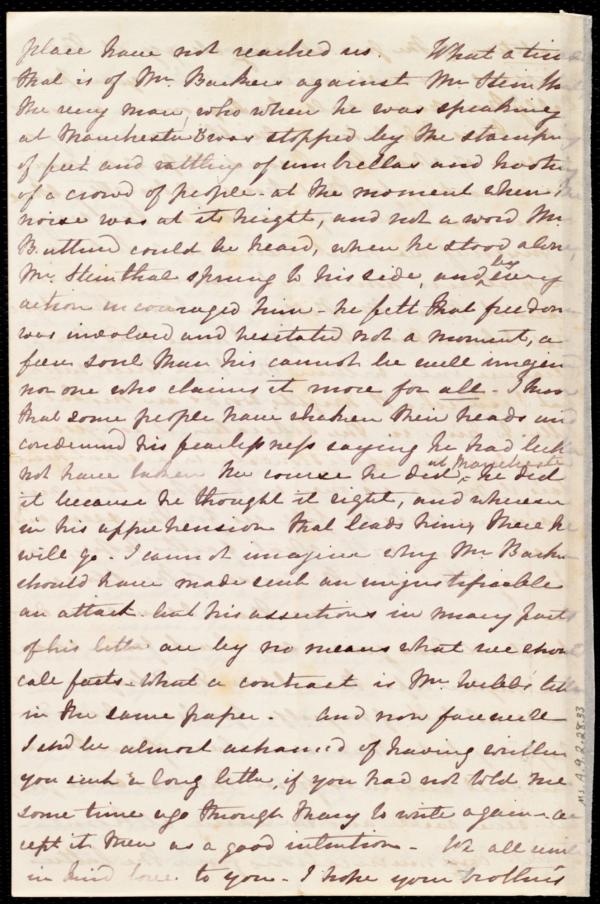 place have not reached us. What a
that is of Mr. Barkers against Mr Steintha
the very man, who when he was speaking
at Manchester & was stopped by the stampn
of feet and rattling of umbrellas and hootin
of a crowd of people - at the moment when
noise was at its height, and not a word Mr.
could be heard, when he stood alone,
Mr. Steinthal sprung to his side, and by every
action incouraged him - he felt that freedom
was involved and hesitated not a moment, a
freer soul than his cannot be well imagin
nor one who claims it more for all - I know
that some people have shaken their heads and
condemned his fearlessness saying he had
not have taken the course he did at Manchester, - he did
it because he thought it right, and wherever
in his apprehension that leads him, there he
will go - I cannot imagine why Mr Barker
should have made such an unjustifiable
an attack. but his assertions in many parts
of his letter are by no means what we shou
call facts - What a contrast is Mr. Webb's lette
in the same paper. - And now farewell
I shd be almost ashamed of having written
you such a long letter, if you had not told me
some time ago through Mary to write again - ac
cept it then as a good intention - We all unite
in kind love to you - I hope your brother's
Ms. A.9.2.28.33